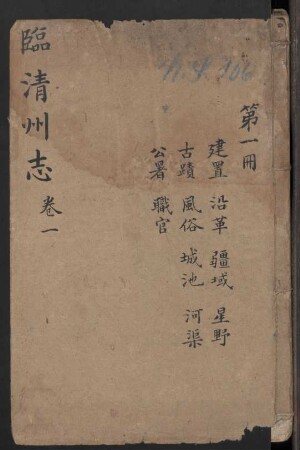 第一冊
建置 沿革 疆域 星野
古蹟 風俗 城池 河渠
公署 職官
臨清州志 卷一